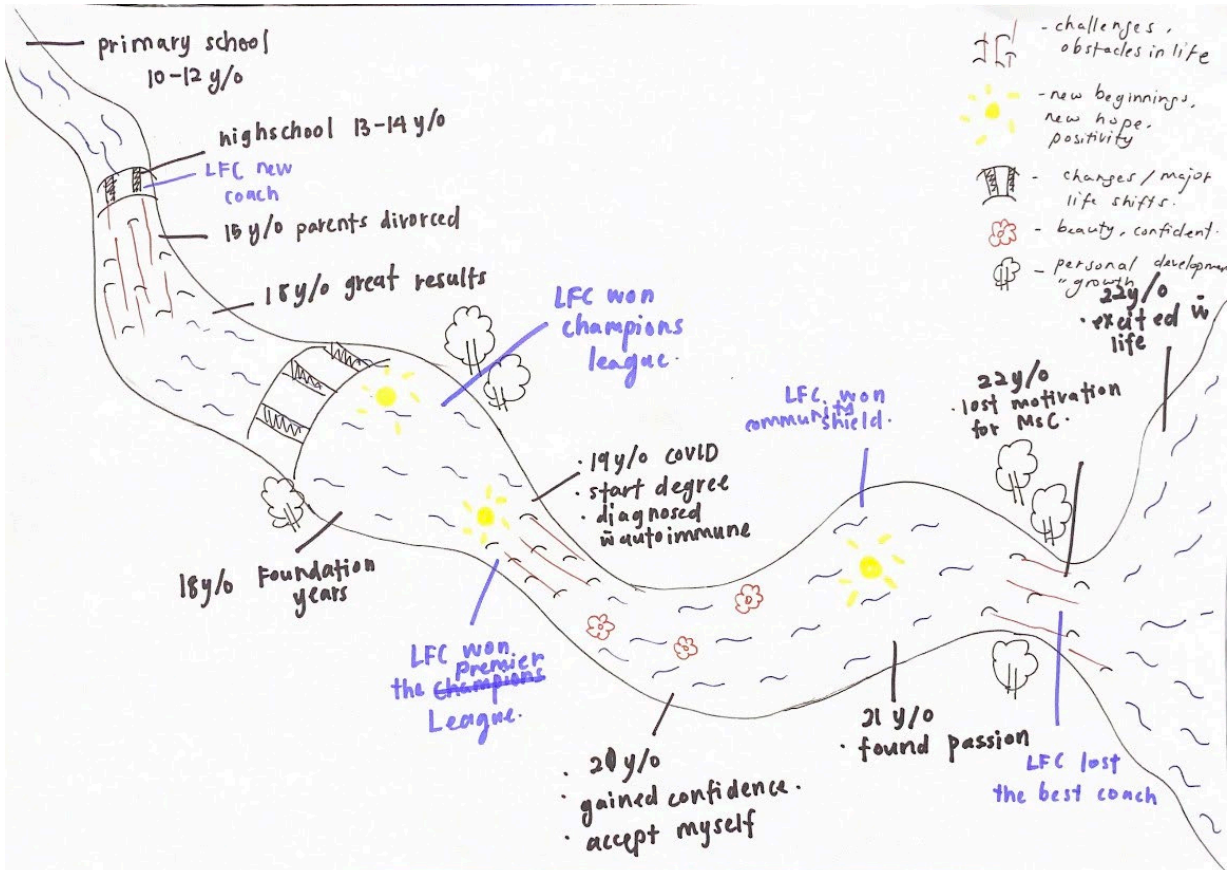 primary school
10-12 y/o
highschool 13-14 y/o
LFC new
coach
15 y/o parents divorced
18 y/o great results
LFC won
champions
league.
18 y/o Foundation
years
LFC won
Premier
the champions
League.
· 19 y/o COVID
· start degree
· diagnosed
w̄ autoimmune
· 20 y/o
· gained confidence.
· accept myself
LFC won
community
shield.
21 y/o
· found passion
22 y/o
· lost motivation
for MSC.
LFC lost
the best coach
22 y/o
· excited w̄
life
- challenges,
obstacles in life
- new beginnings,
new hope,
positivity
- changes / major
life shifts.
- beauty, confident.
- personal development
growth